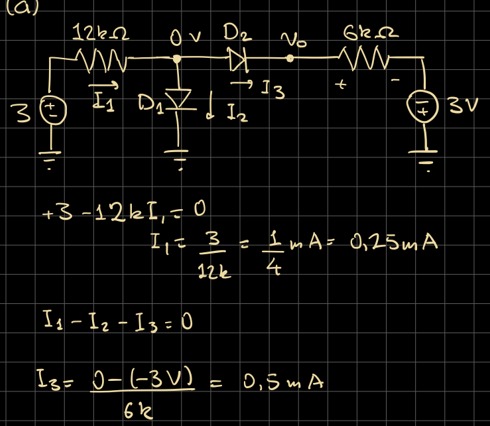 (a)
12kΩ 0 v D₂ V₀ 6kΩ
I₁ D₁ I₂ I₃ + -
3 + - - + 3V
+3 - 12kI₁ = 0
I₁ = 3/12k = 1/4 mA = 0,25mA
I₁ - I₂ - I₃ = 0
I₃ = 0-(-3V)/6k = 0,5mA